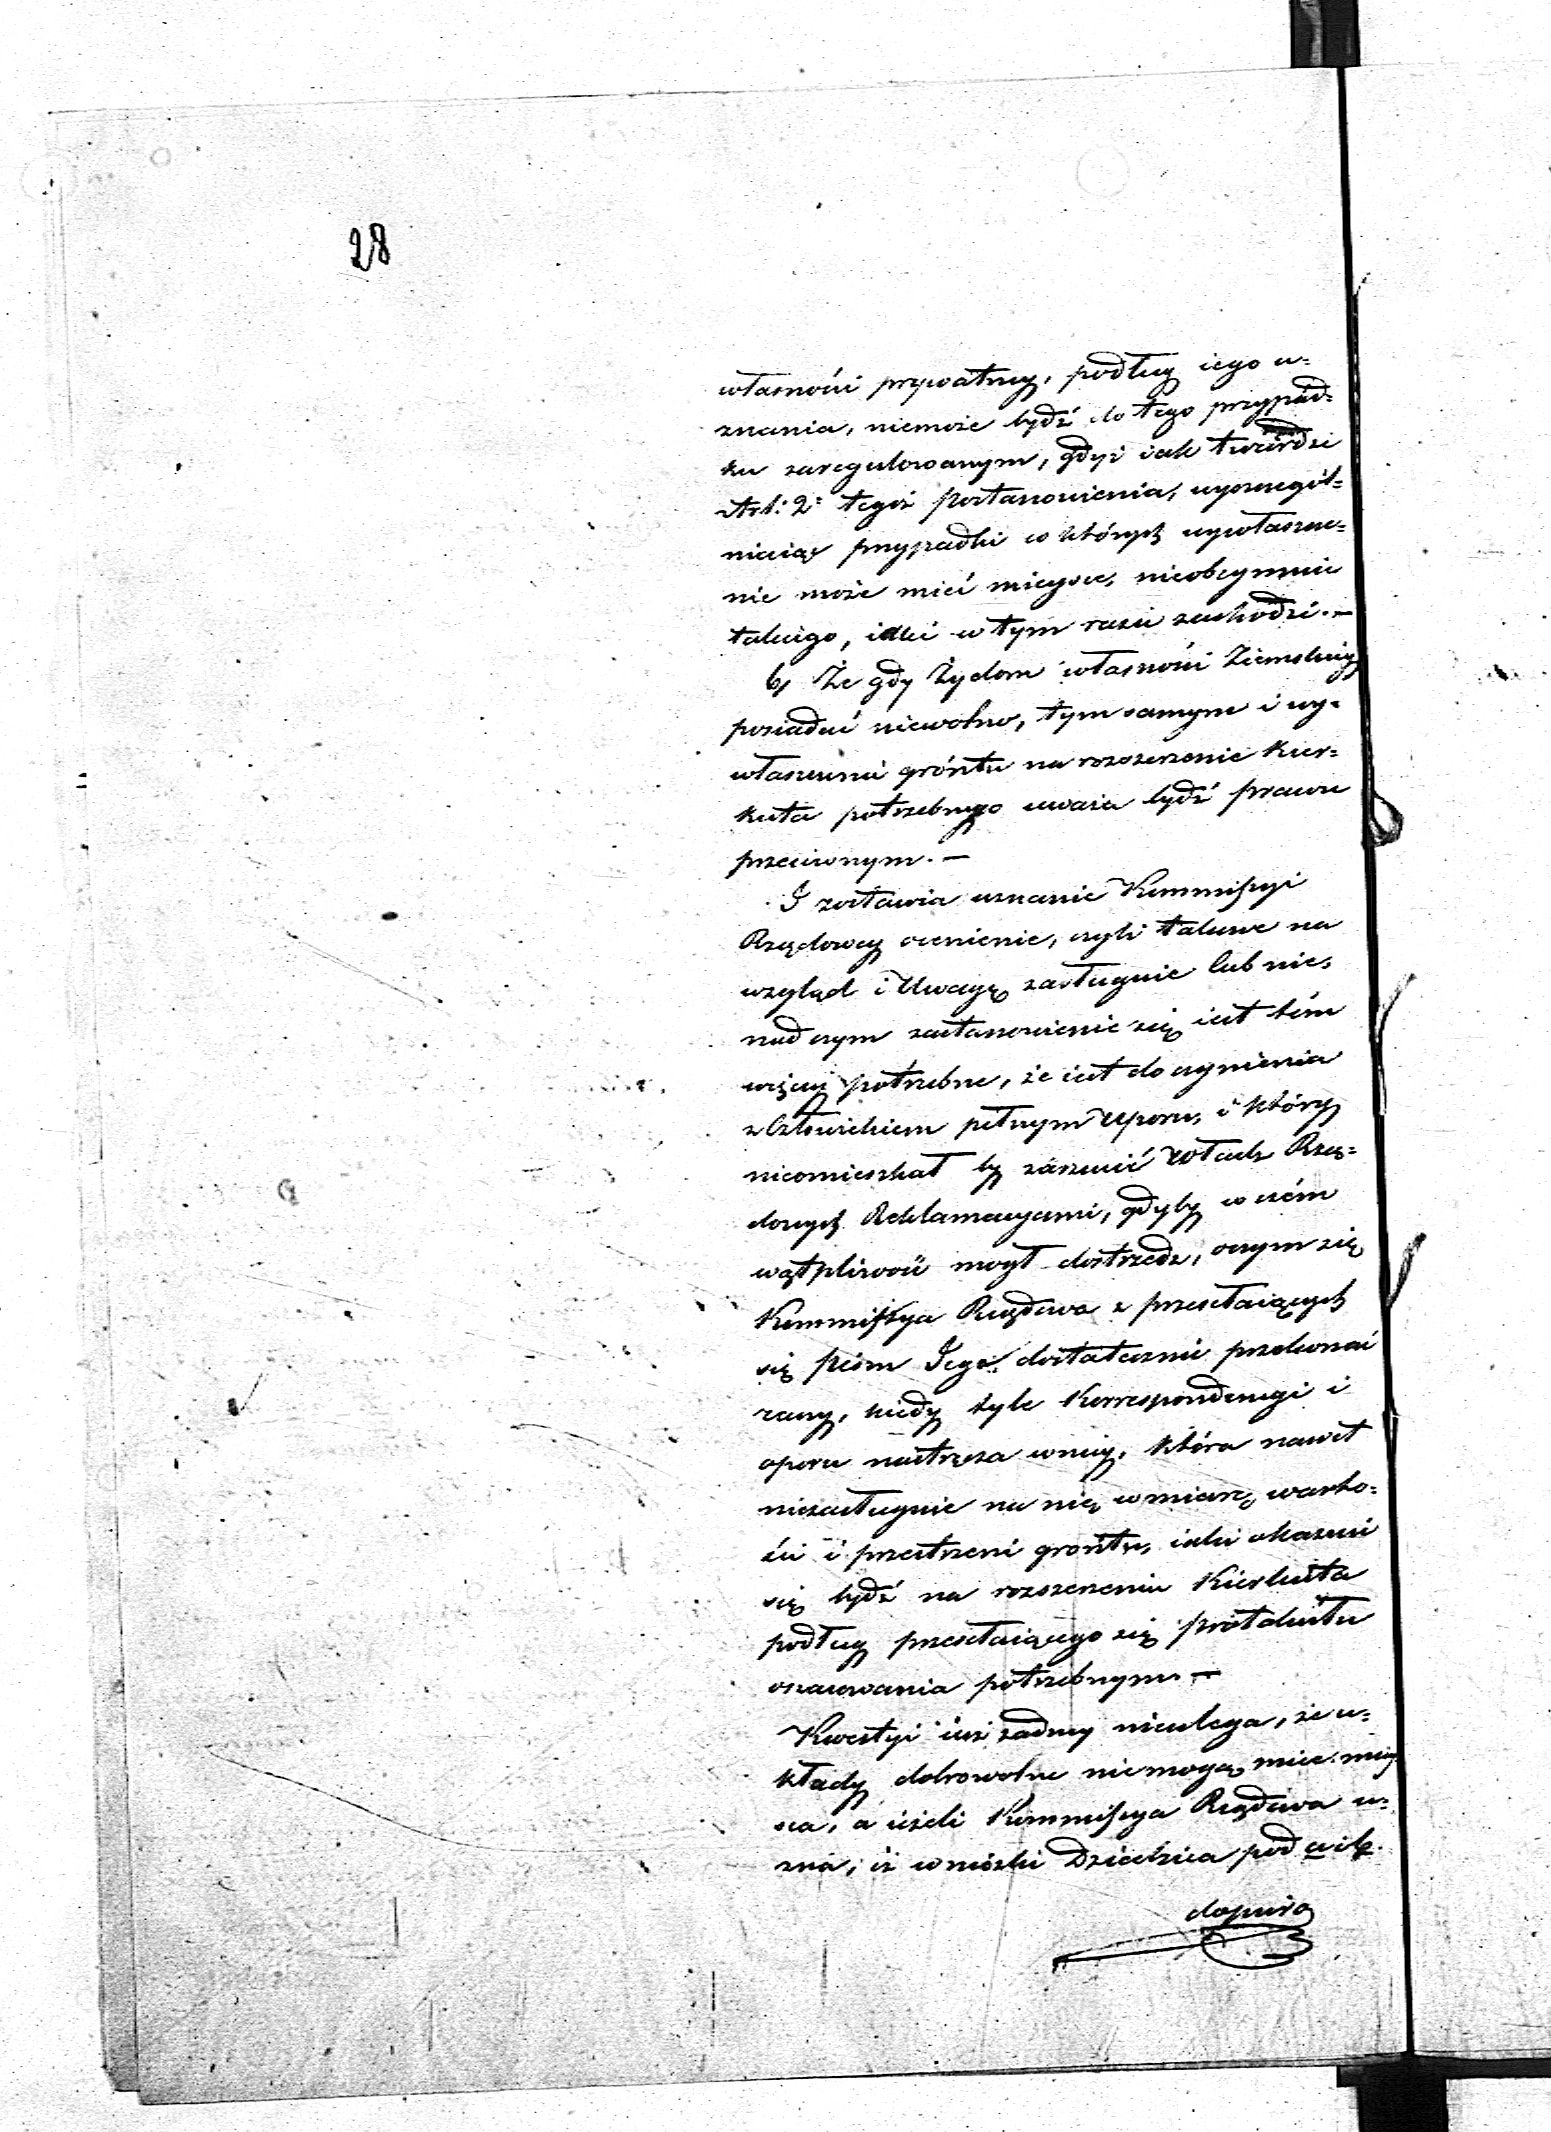 28
własności prywatney, podług iego u=
znania, niemoże bydź do tego przypad=
ku zaregulowanym, gdyż iak twierdzi
Art: 2: tegoż postanowienia, wyszczegól=
niaiąc przypadki w których wywłaszcze=
nie może mieć mieysce, nieobeymuie
takiego, iaki w tym razie zachodzi. —
b, Że gdy Żydom własności Ziemskiey
posiadać niewolno, tym samym i wy=
własczenie gróntu na rozszerzenie Kier=
kuta potrzebnego uważa bydź prawu
przeciwnym. —
I zostawia uznanie Kommissyi
Rządowey ocenienie, czyli takowe na
wzgląd i Uwagę zasługuie lub nie,
nad czym zastanowienie się iest tém
więcey potrzebne, że iest do czynienia
z Człowiekiem pełnym Uporu, i który
nieomieszkał by zarzucić Władz Rzą=
dowych Reklamacyami, gdyby w czém
wątpliwość mogł dostrzedz, o czym się
Kommissya Rządowa z przesełaiących
się pism Jego dostatecznie przekonać
raczy, kiedy tyle Korrespondencyi i
oporu nastręcza w niey, która nawet
niezasługuie na nią w miarę warto=
ści i przestrzeni gróntu, iaki okazuie
się bydź na rozszerzenie Kierkuta
podług przesełaiącego się protokułu
oszacowania potrzebnym. —
Kwestyi iuż żadney nieulega, że u=
kłady dobrowolne niemogą mieć miey
sca, a ieżeli Kommissya Rządowa u=
zna, iż wnioski Dziedzica pod a i b.
dopiero